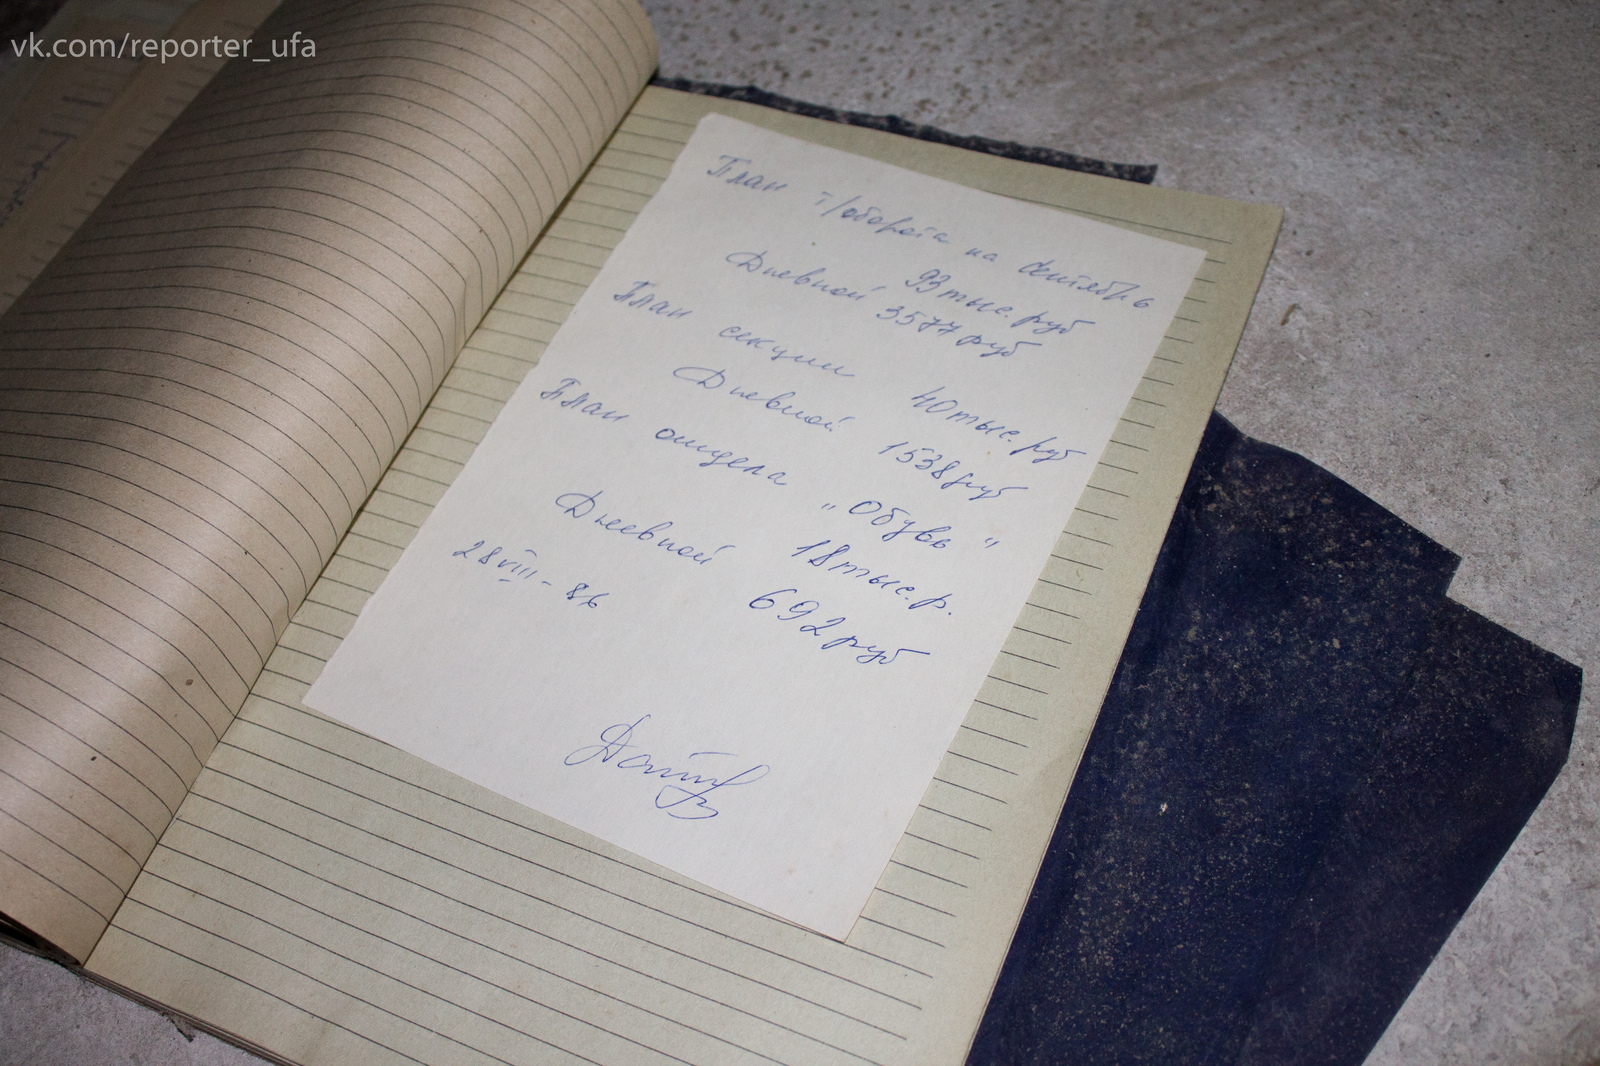 vk.com/reporter_ufa
План т/оборота на сентябрь
93 тыс. руб
Дневной 3577 руб
План секции 40 тыс. руб
Дневной 1538 руб
План отдела "Обувь"
18 тыс. р.
Дневной 692 руб
28 VIII - 86